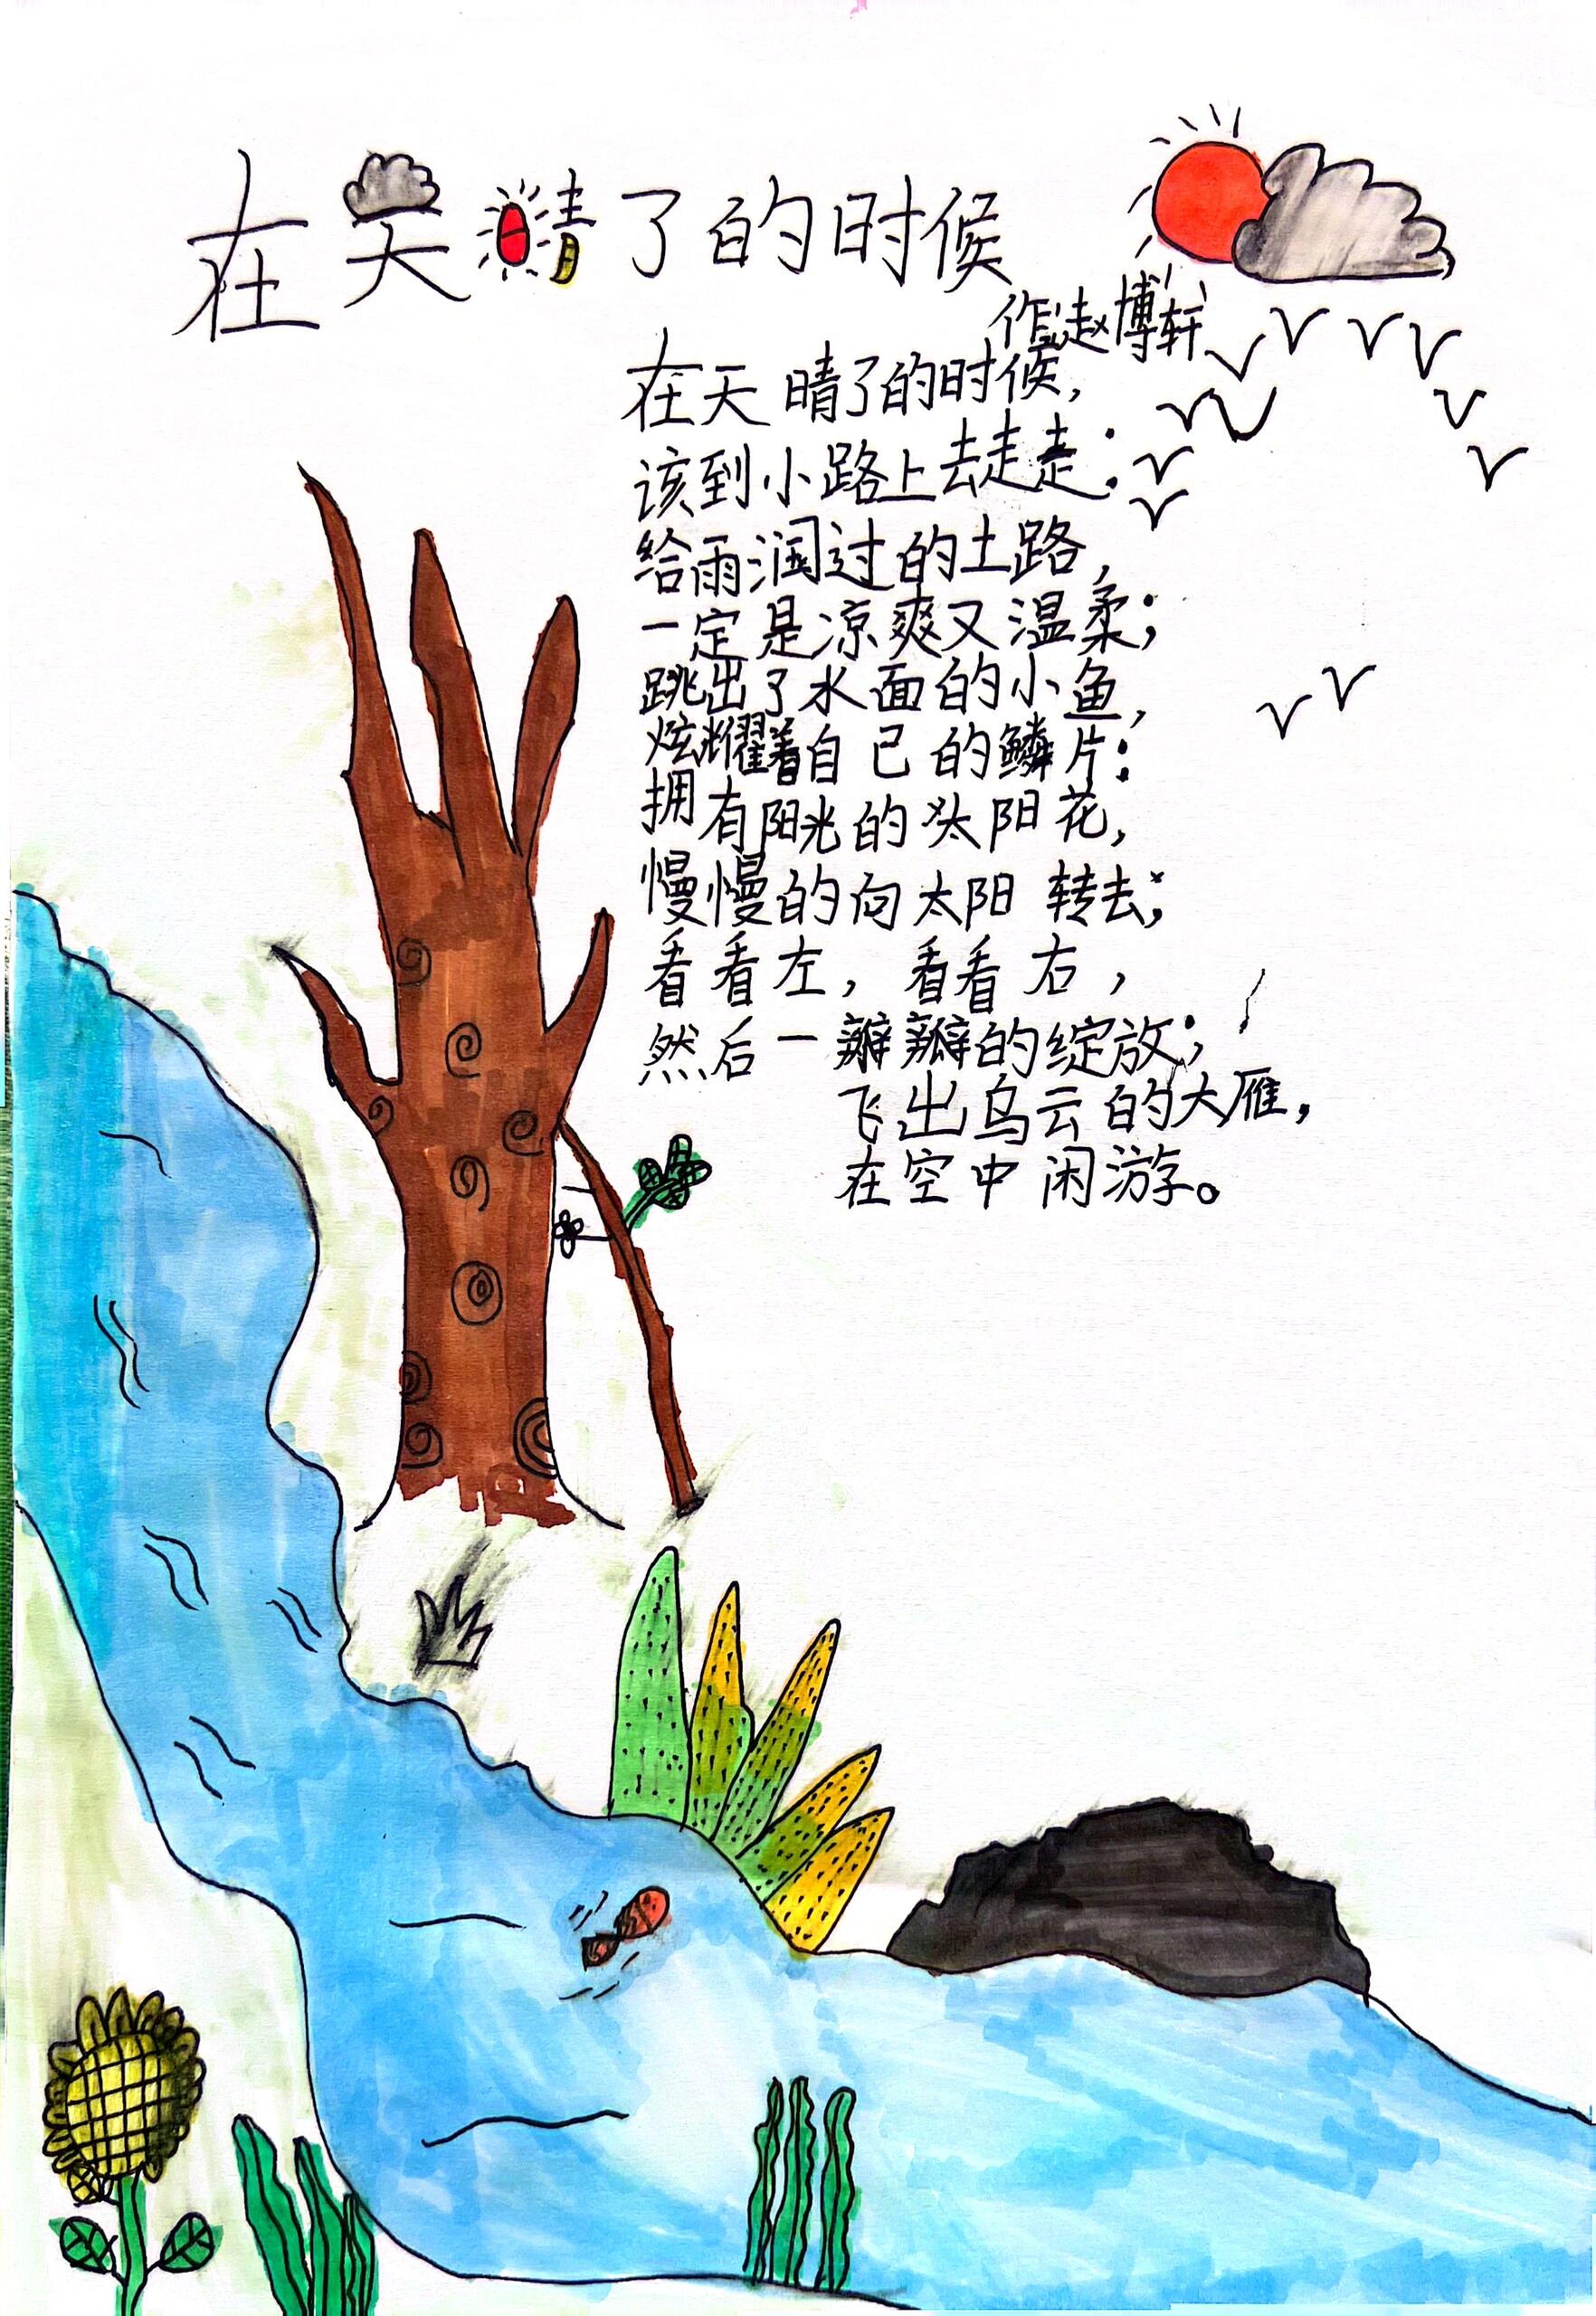 在天晴了的时候
作:赵博轩
在天晴了的时候,
该到小路上去走走:
给雨润过的土路,
一定是凉爽又温柔;
跳出了水面的小鱼,
炫耀着自己的鳞片:
拥有阳光的太阳花,
慢慢的向太阳转去;
看看左,看看右,
然后一瓣瓣的绽放;
飞出乌云的大雁,
在空中闲游。